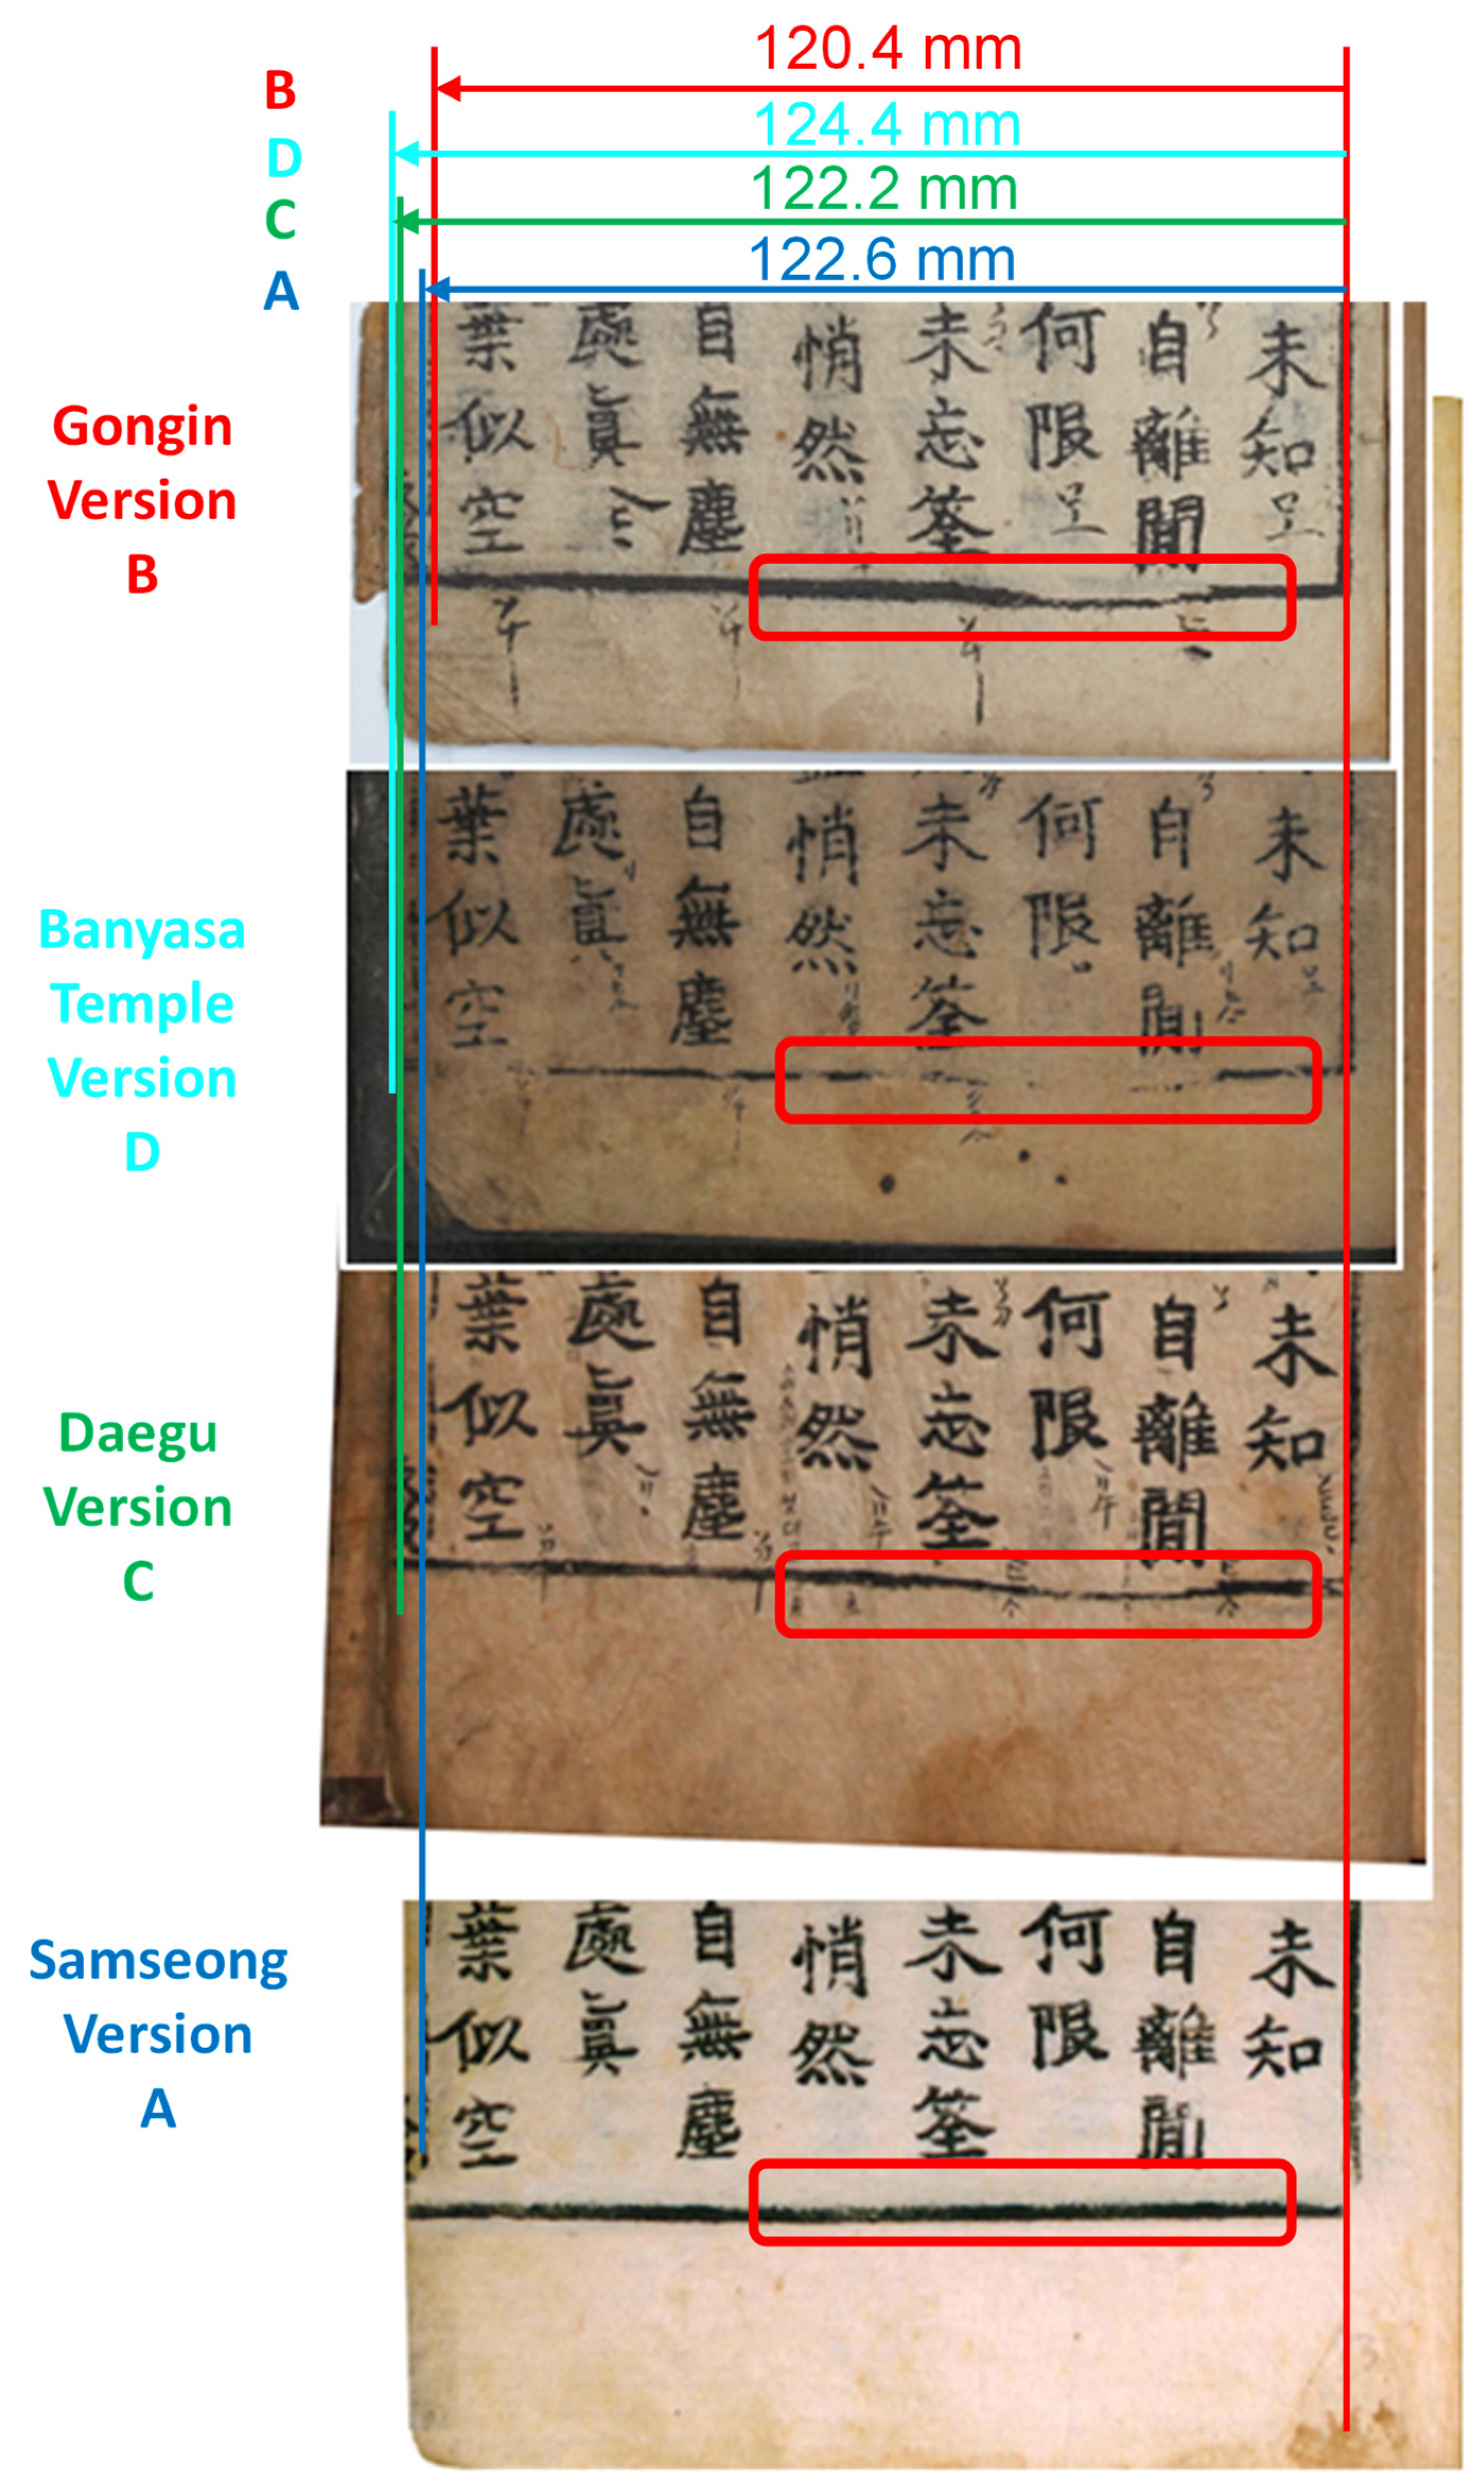 B 120.4 mm
D 124.4 mm
C 122.2 mm
A 122.6 mm
Gongin
Version
B
未知
自離閒
何限
未忘筌
悄然
自無塵
處眞
葉似空
Banyasa
Temple
Version
D
未知
自離閒
何限
未忘筌
悄然
自無塵
處眞
葉似空
Daegu
Version
C
未知
自離閒
何限
未忘筌
悄然
自無塵
處眞
葉似空
Samseong
Version
A
未知
自離閒
何限
未忘筌
悄然
自無塵
處眞
葉似空